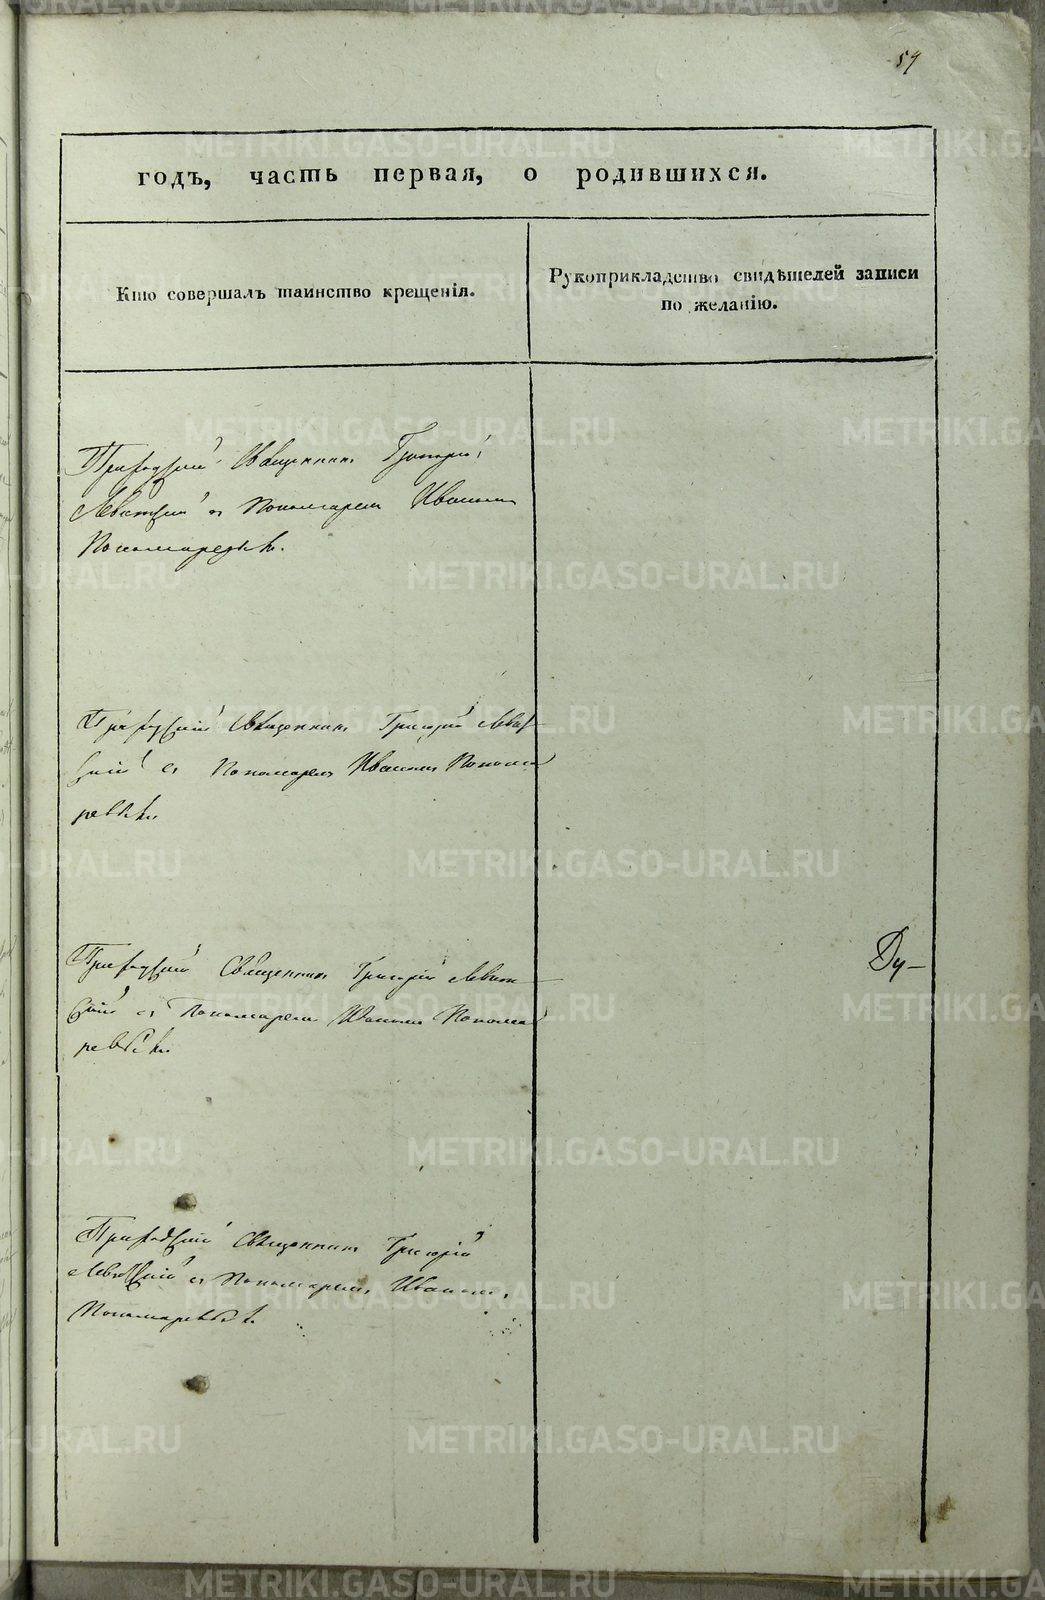 годъ, часть первая, о родившихся.
Кто совершалъ таинство крещенія.
Рукоприкладство свидѣтелей записи
по желанію.
Приходскій Священникъ Григорій
Левитскій съ Пономаремъ Иваномъ
Пономаревымъ.
Приходскій Священникъ Григорій Левит-
скій съ Пономаремъ Иваномъ Понома
ревымъ
Приходскій Священникъ Григорій Левит-
скій съ Пономаремъ Иваномъ Понома
ревымъ
Ду-
Приходскій Священникъ Григорій
Левитскій съ Пономаремъ Иваномъ
Пономаревымъ.
METRIKI.GASO-URAL.RU